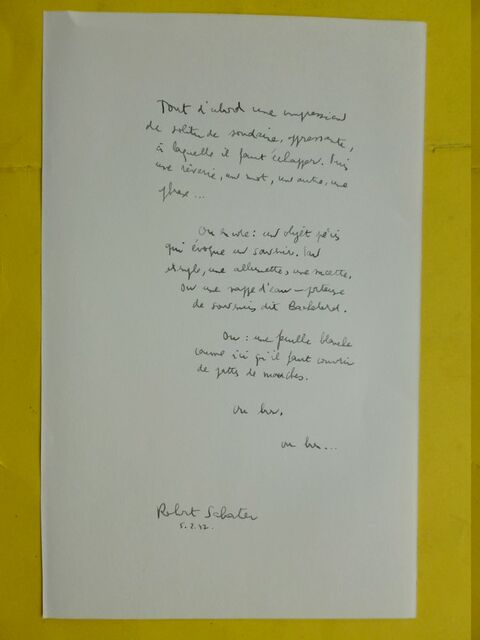 Tout d'abord une impression
de solitude soudaine, oppressante,
à laquelle il faut échapper. Puis
une rêverie, un mot, un autre, une
phrase...
Ou encore : un objet précis
qui évoque un souvenir. Par
exemple, une allumette, une
ou une nappe d'eau – porteuse
de souvenirs dit Bachelard.
Ou : une feuille blanche
comme ici qu'il faut couvrir
de pattes de mouches.
ou bien,
ou bien...
Robert Sabatier